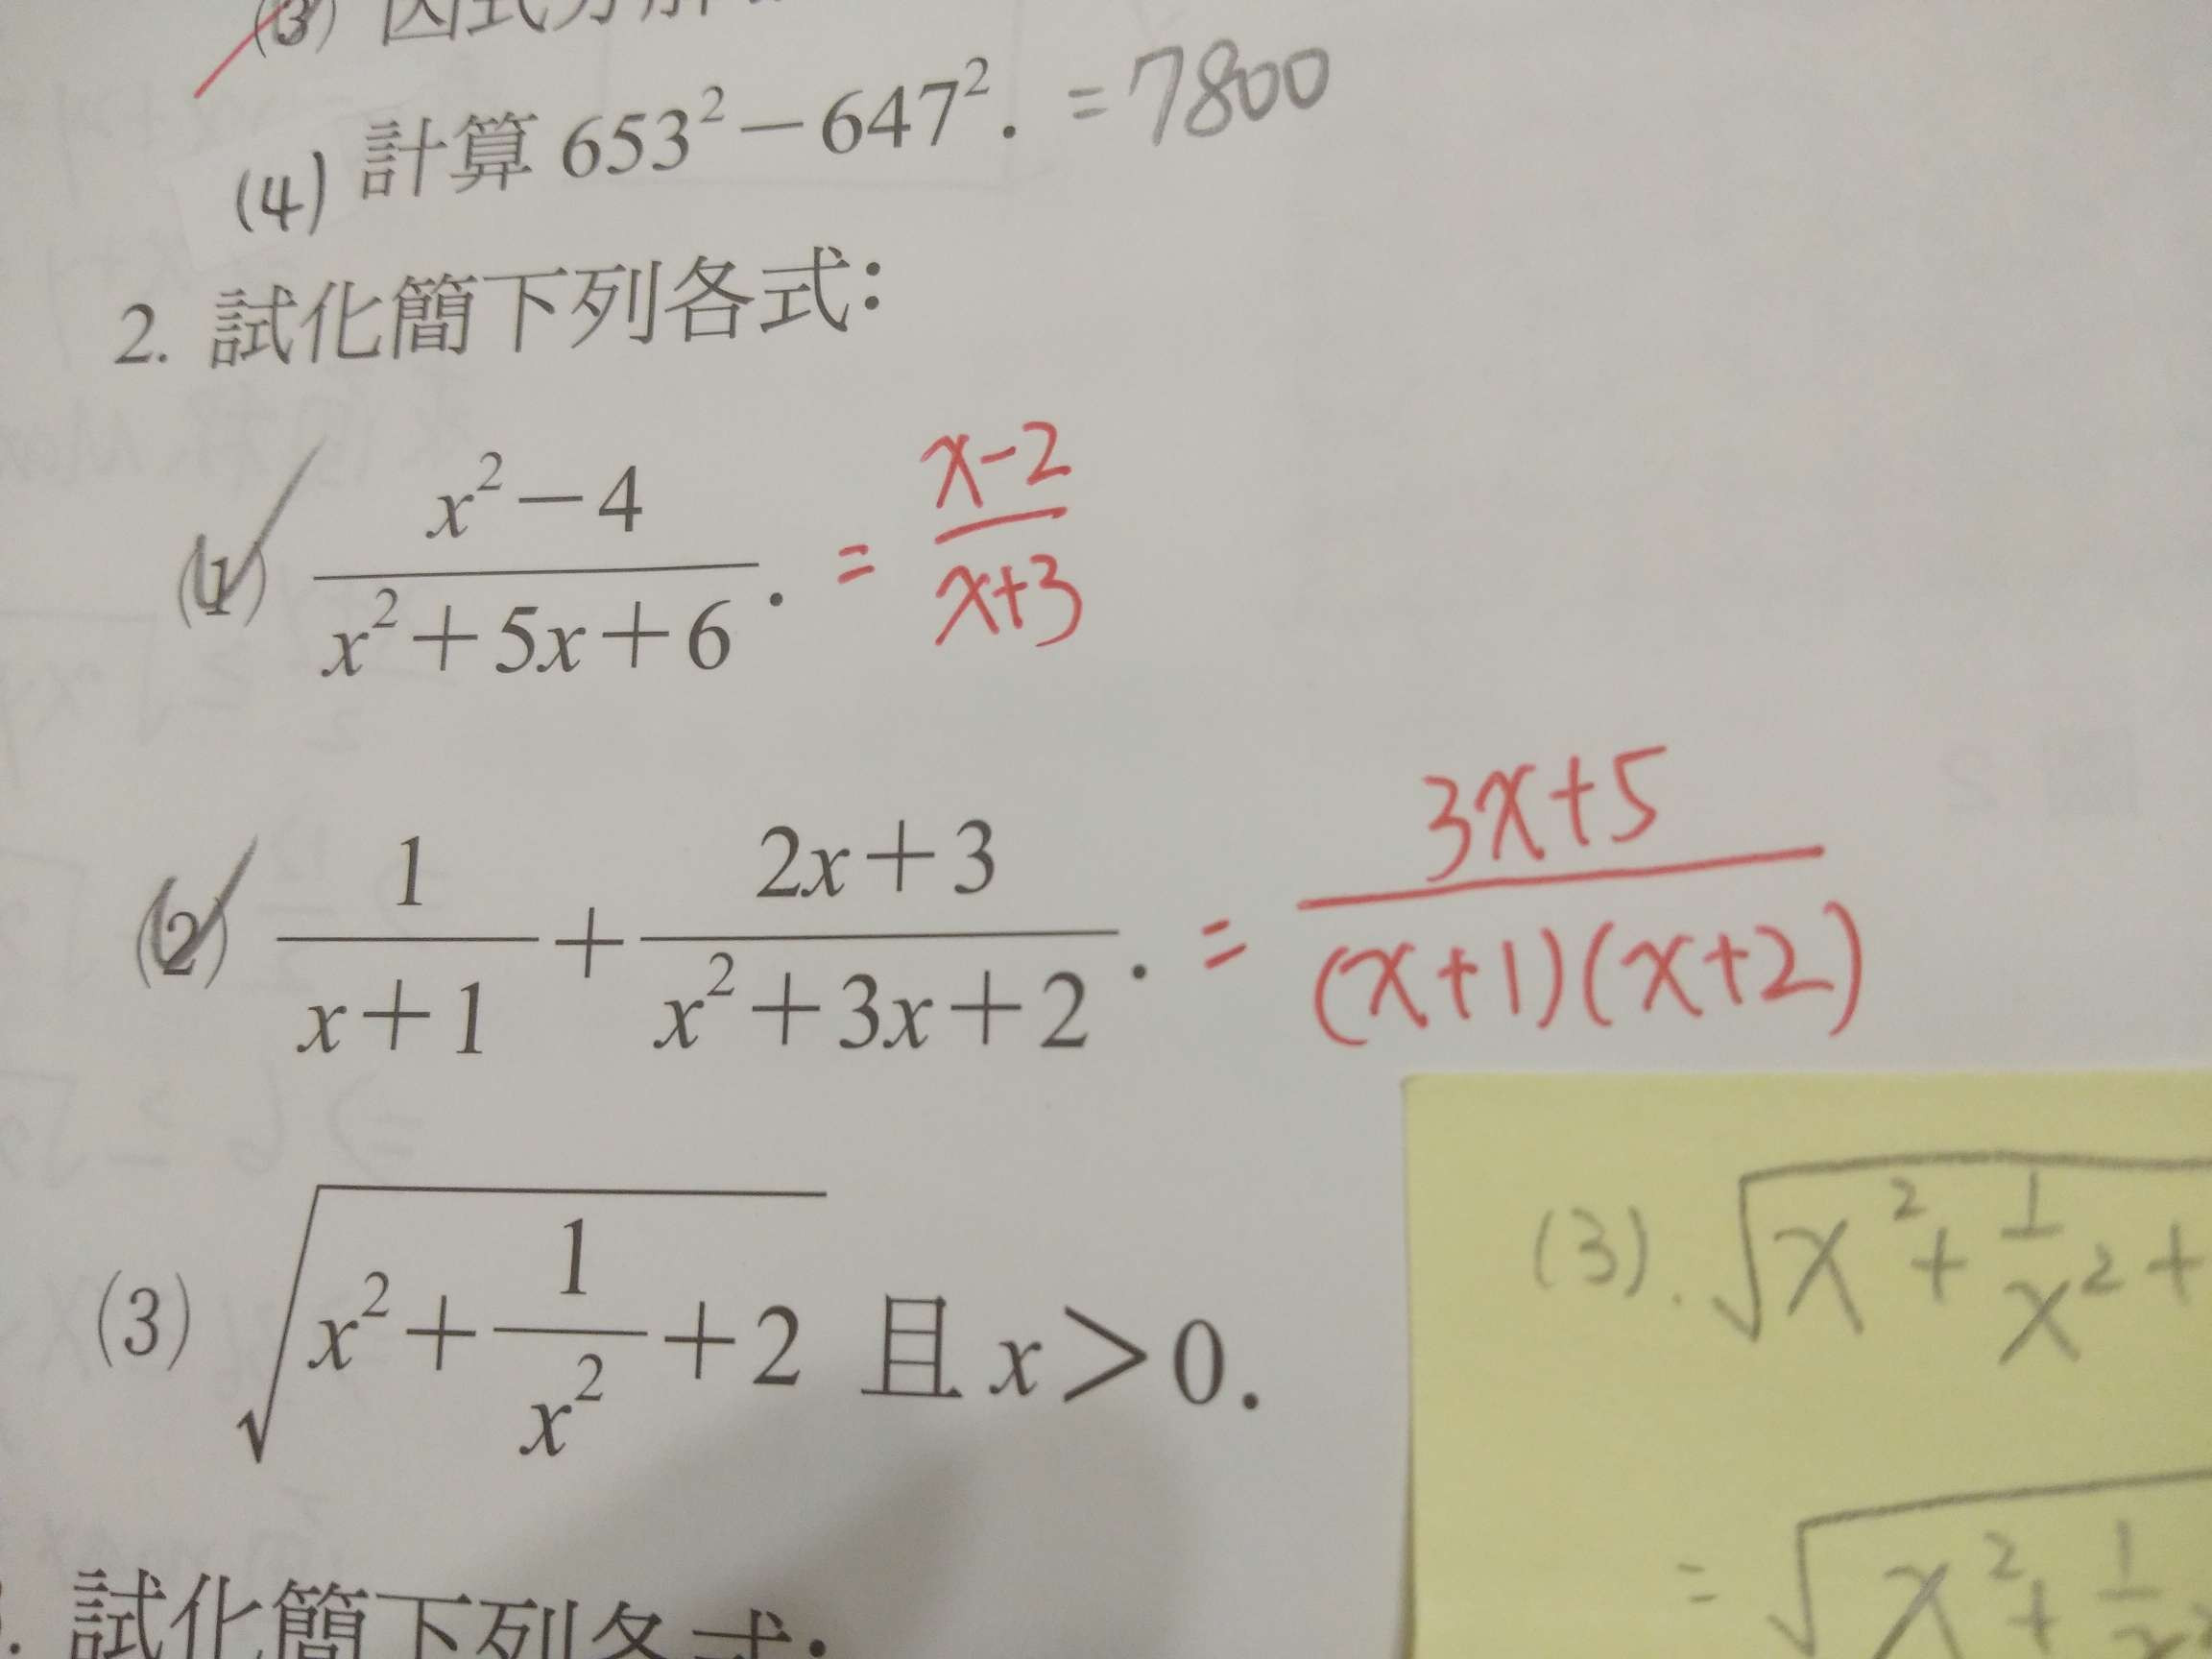 (3) 因式分解
(4) 計算 653² − 647². = 7800
2. 試化簡下列各式：
(1) (x² − 4)/(x² + 5x + 6). = (x − 2)/(x + 3)
(2) 1/(x + 1) + (2x + 3)/(x² + 3x + 2). = (3x + 5)/((x + 1)(x + 2))
(3) √(x² + 1/x² + 2) 且 x > 0.
(3). √(x² + 1/x² +
= √(x² + 1/x²
. 試化簡下列各式：